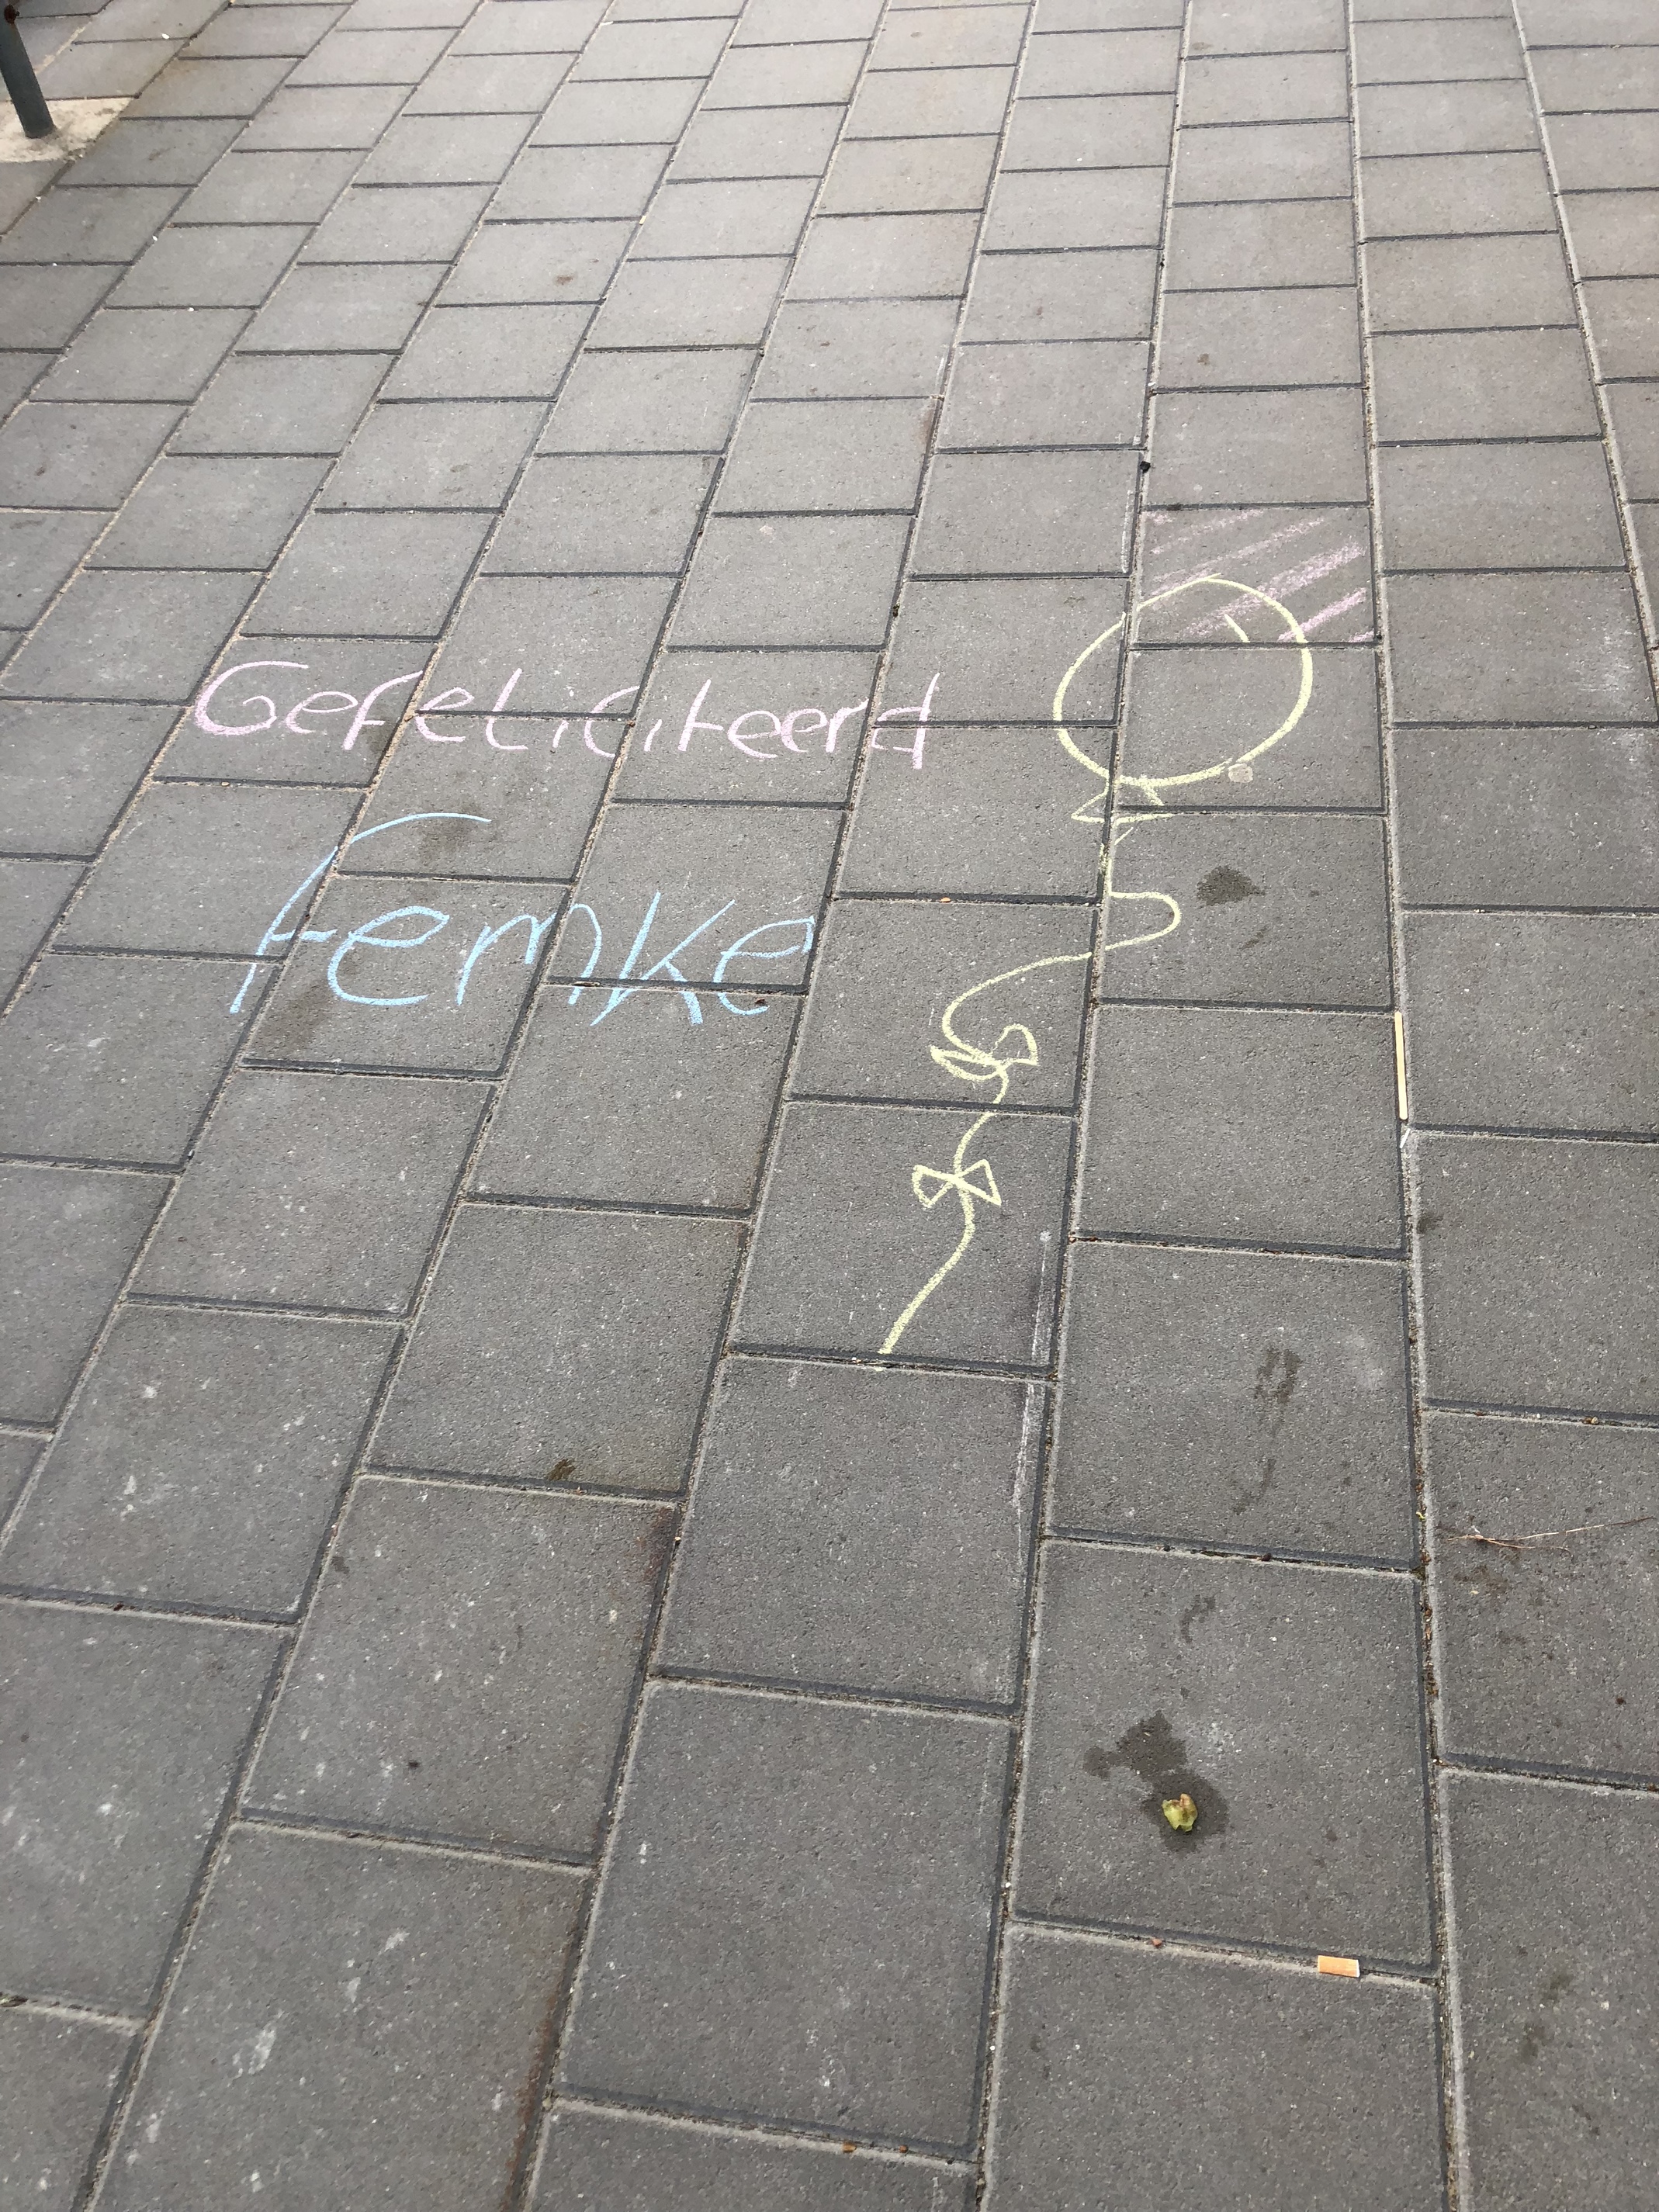 Gefeliciteerd
Femke